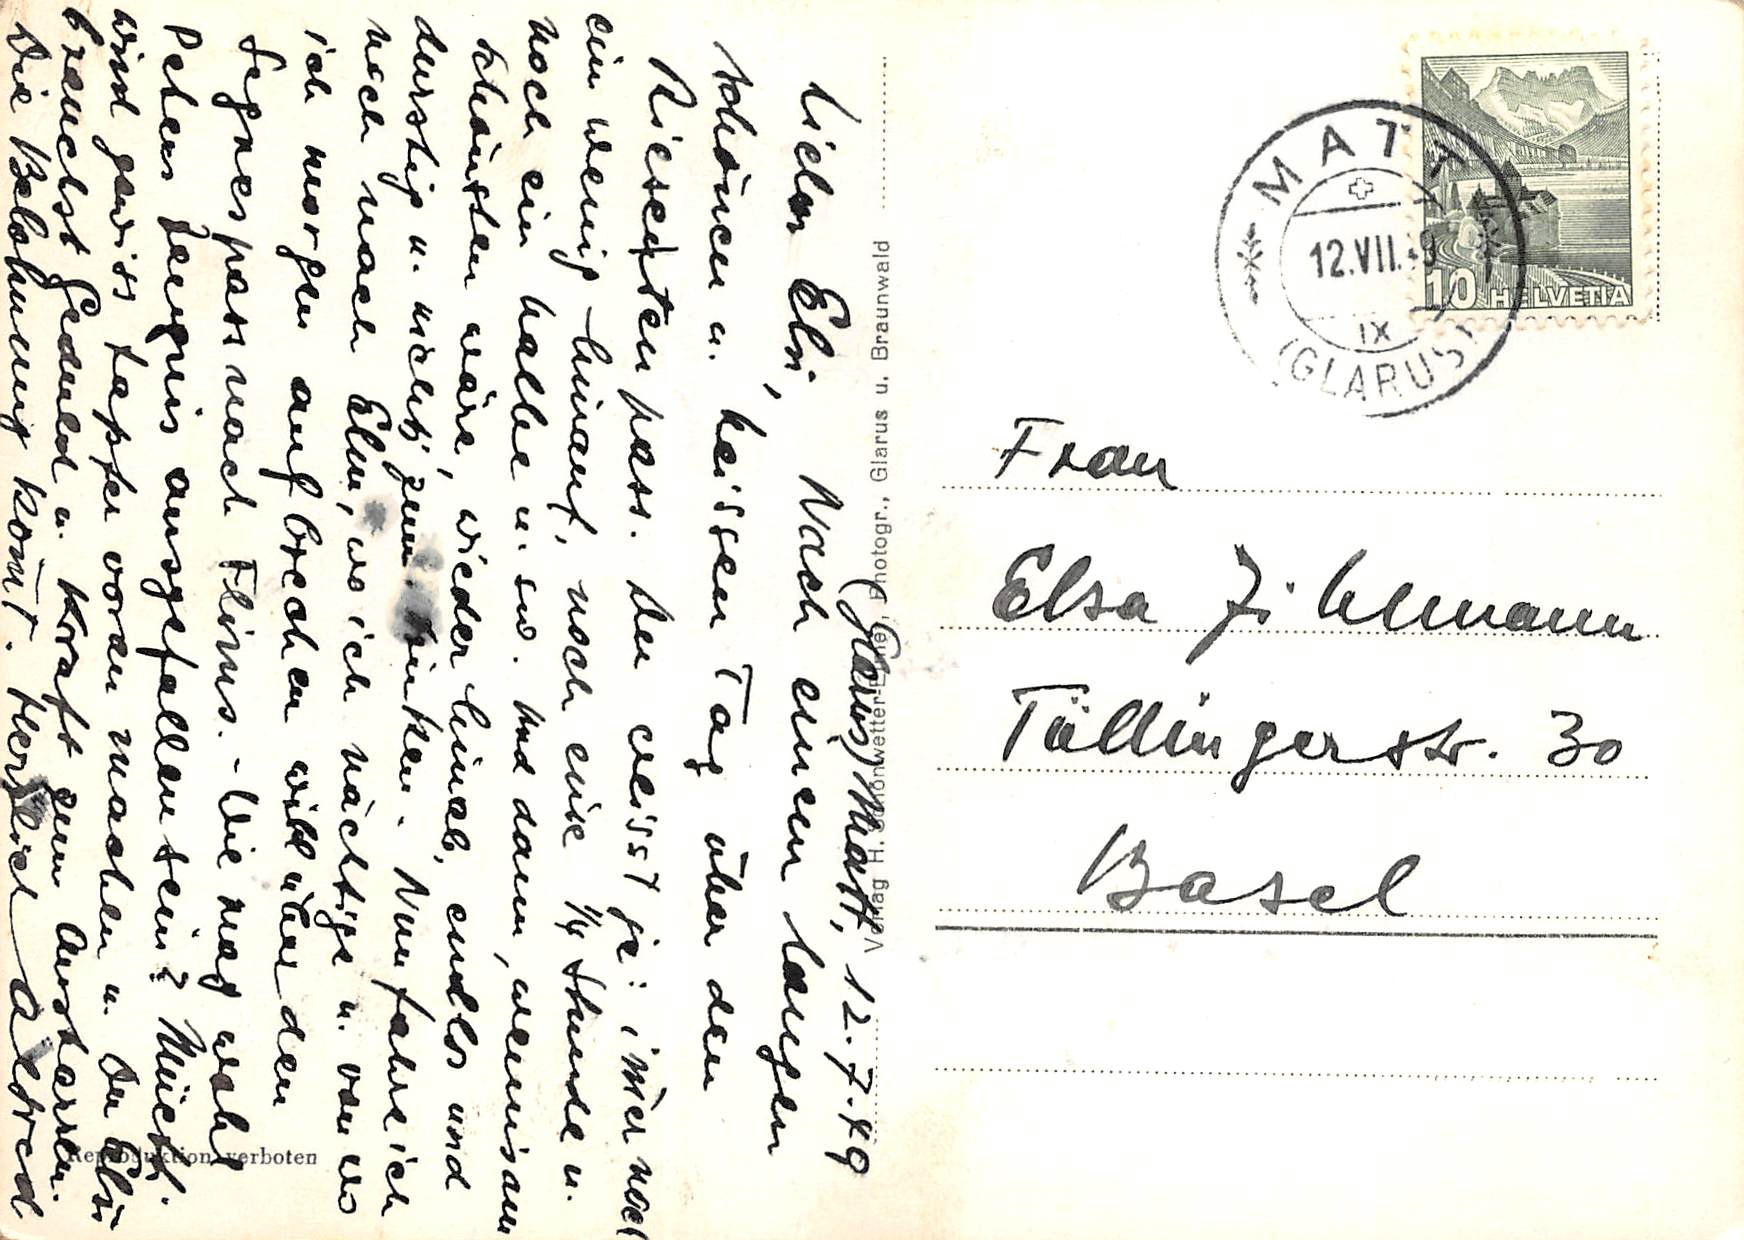 Glarus/Matt, 12.7.49
Lieber Elsi, Nach einem langen
schönen u. heissen Tag über den
Riesetenpass. Du weisst ja: im̄er noch
ein wenig hinauf, noch eine 1/4 Stunde u.
noch ein halbe u. so. Und dann, wenns am
schönsten wäre, wieder hinab, endlos und
durstig u. nichts zum trinken. Nun fahre ich
noch nach Elm, wo ich nächtige u. von wo
ich morgen aufbrechen will über den
Segnespass nach Flims. - Wie mag wohl
Peters Zeugnis ausgefallen sein? Müeti
wird gewiss tapfer voran machen u. Du Elsi
brauchst Geduld u. Kraft zum Ausharren.
Die Belohnung kom̄t. Herzlich Alfred
Reproduktion verboten
Verlag H. Schönwetter-Elmer, Photogr., Glarus u. Braunwald
MATT
12.VII.49
IX
(GLARUS)
10 HELVETIA
Frau
Elsa Zihlmann
Tüllingerstr. 30
Basel